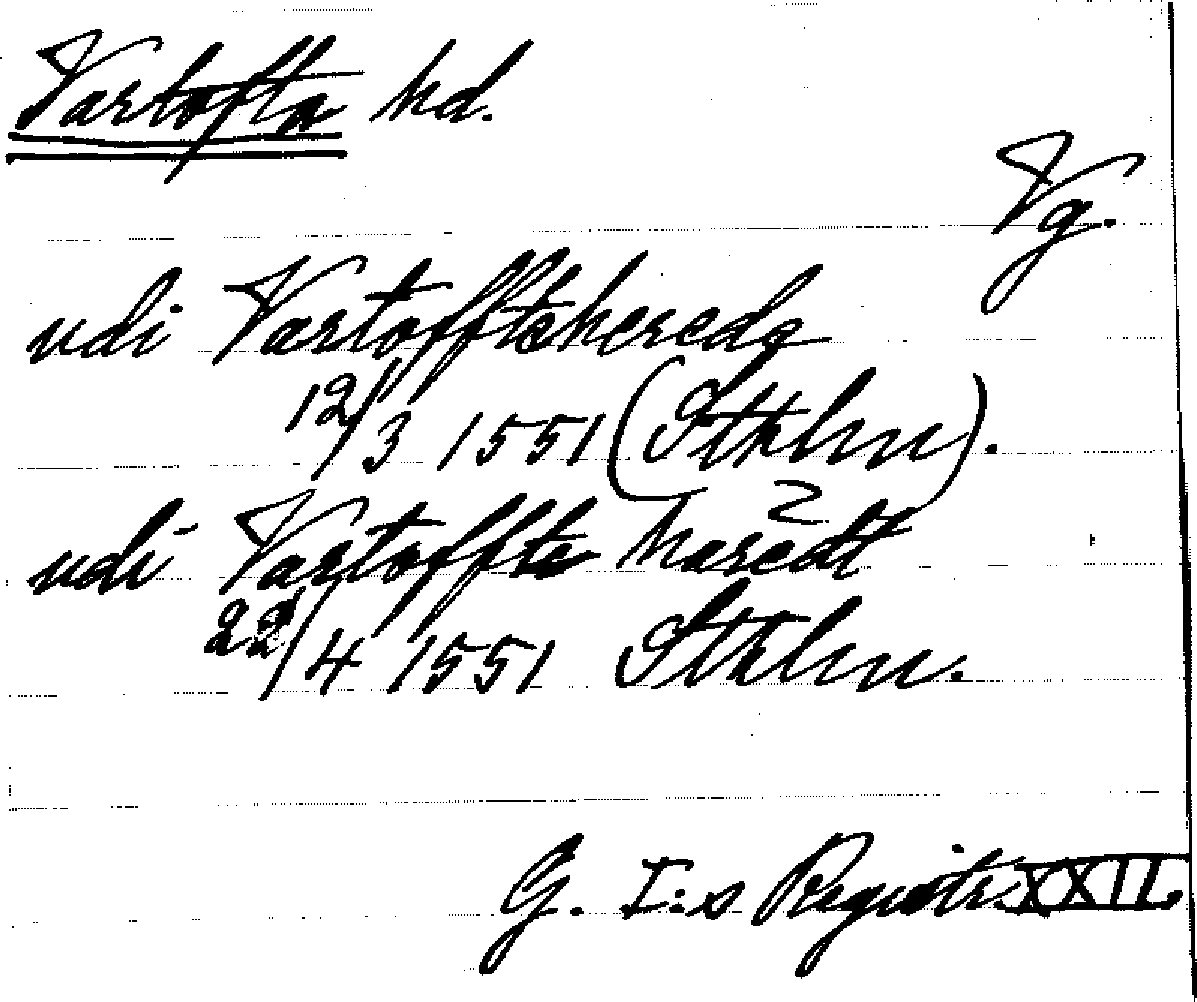 Vartofta hd.
Vg.
udi Vartoffteherede
12/3 1551 (Sthlm).
udi Vartoffte hæredt
22/4 1551 Sthlm.
G. I:s Registr. XXII